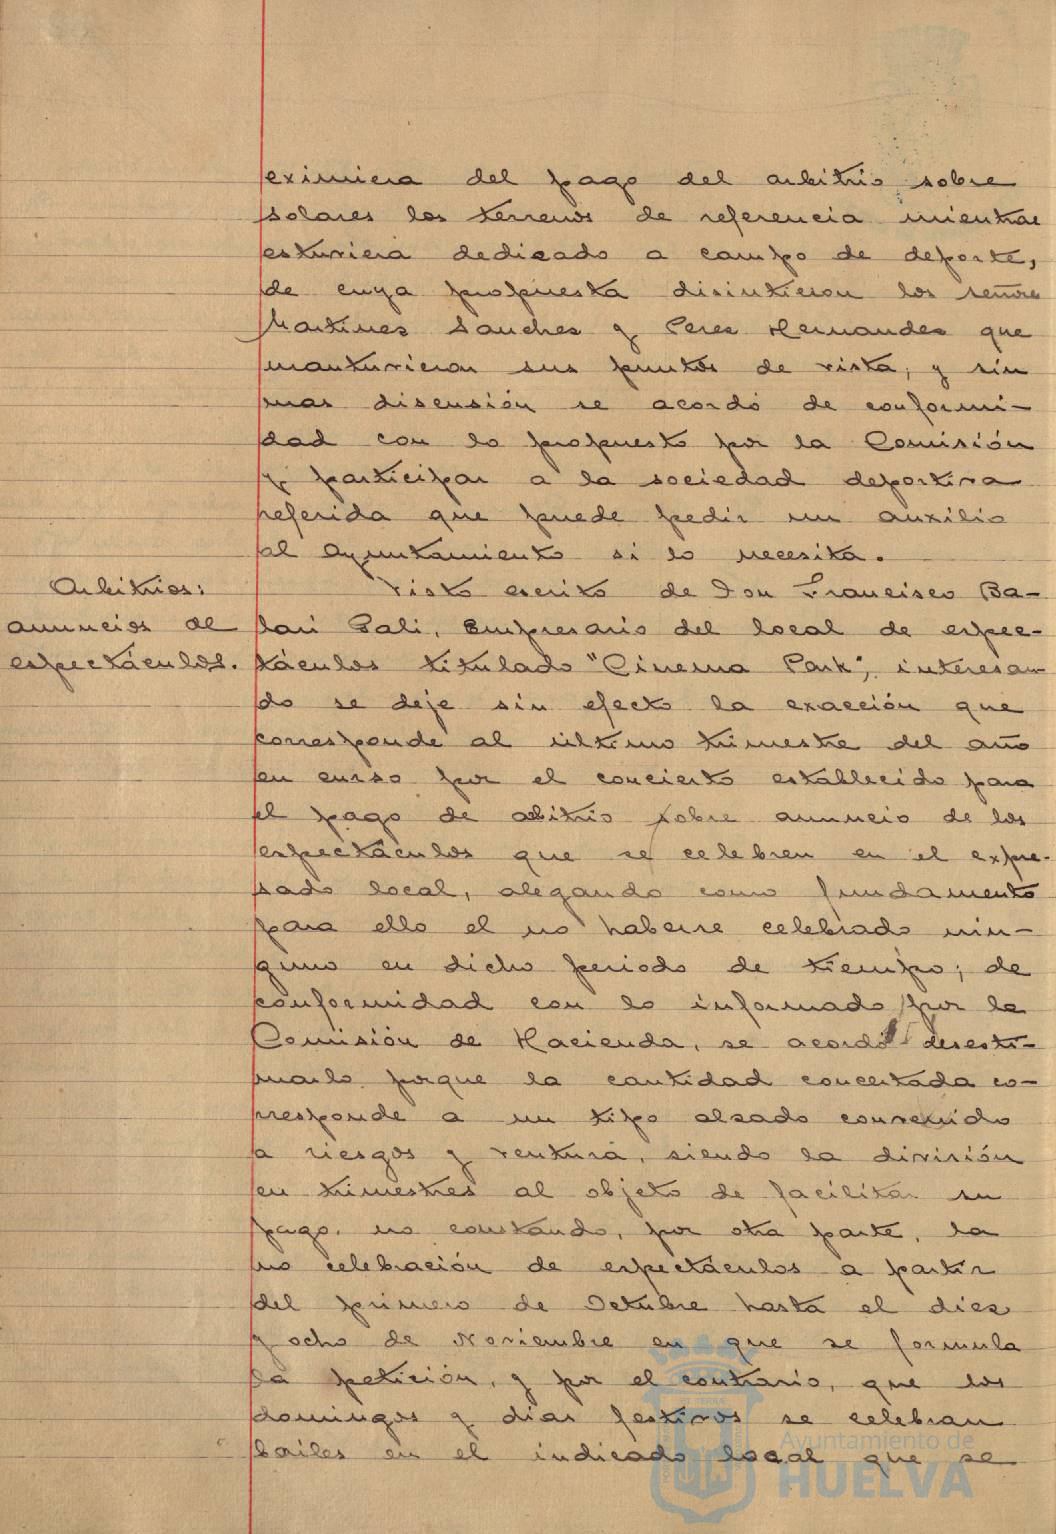 eximiera del pago del arbitrio sobre
solares los terrenos de referencia mientras
estuviera dedicado a campo de deporte,
de cuya propuesta disintieron los señores
Martines Sanches y Peres Hernandes que
mantuvieron sus puntos de vista, y sin
mas discusión se acordó de conformi-
dad con lo propuesto por la Comisión
y participar a la sociedad deportiva
referida que puede pedir un auxilio
al Ayuntamiento si lo necesita.
Arbitrios:
anuncios de
espectáculos.
Visto escrito de Don Francisco Ba-
lari Gali, Empresario del local de espec-
táculos titulado "Cinema Park", interesan-
do se deje sin efecto la exacción que
corresponde al último trimestre del año
en curso por el concierto establecido para
el pago de abitrio sobre anuncio de los
espectáculos que se celebren en el expre-
sado local, alegando como fundamento
para ello el no haberse celebrado nin-
guno en dicho periodo de tiempo; de
conformidad con lo informado por la
Comisión de Hacienda, se acordó desesti-
marlo porque la cantidad concertada co-
rresponde a un tipo alsado convenido
a riesgos y ventura, siendo la división
en trimestres al objeto de facilitar su
pago, no constando, por otra parte, la
no celebración de espectáculos a partir
del primero de Octubre hasta el dies
y ocho de Noviembre en que se formula
la petición, y por el contrario, que los
domingos y dias festivos se celebran
bailes en el indicado local que se
Ayuntamiento de
HUELVA